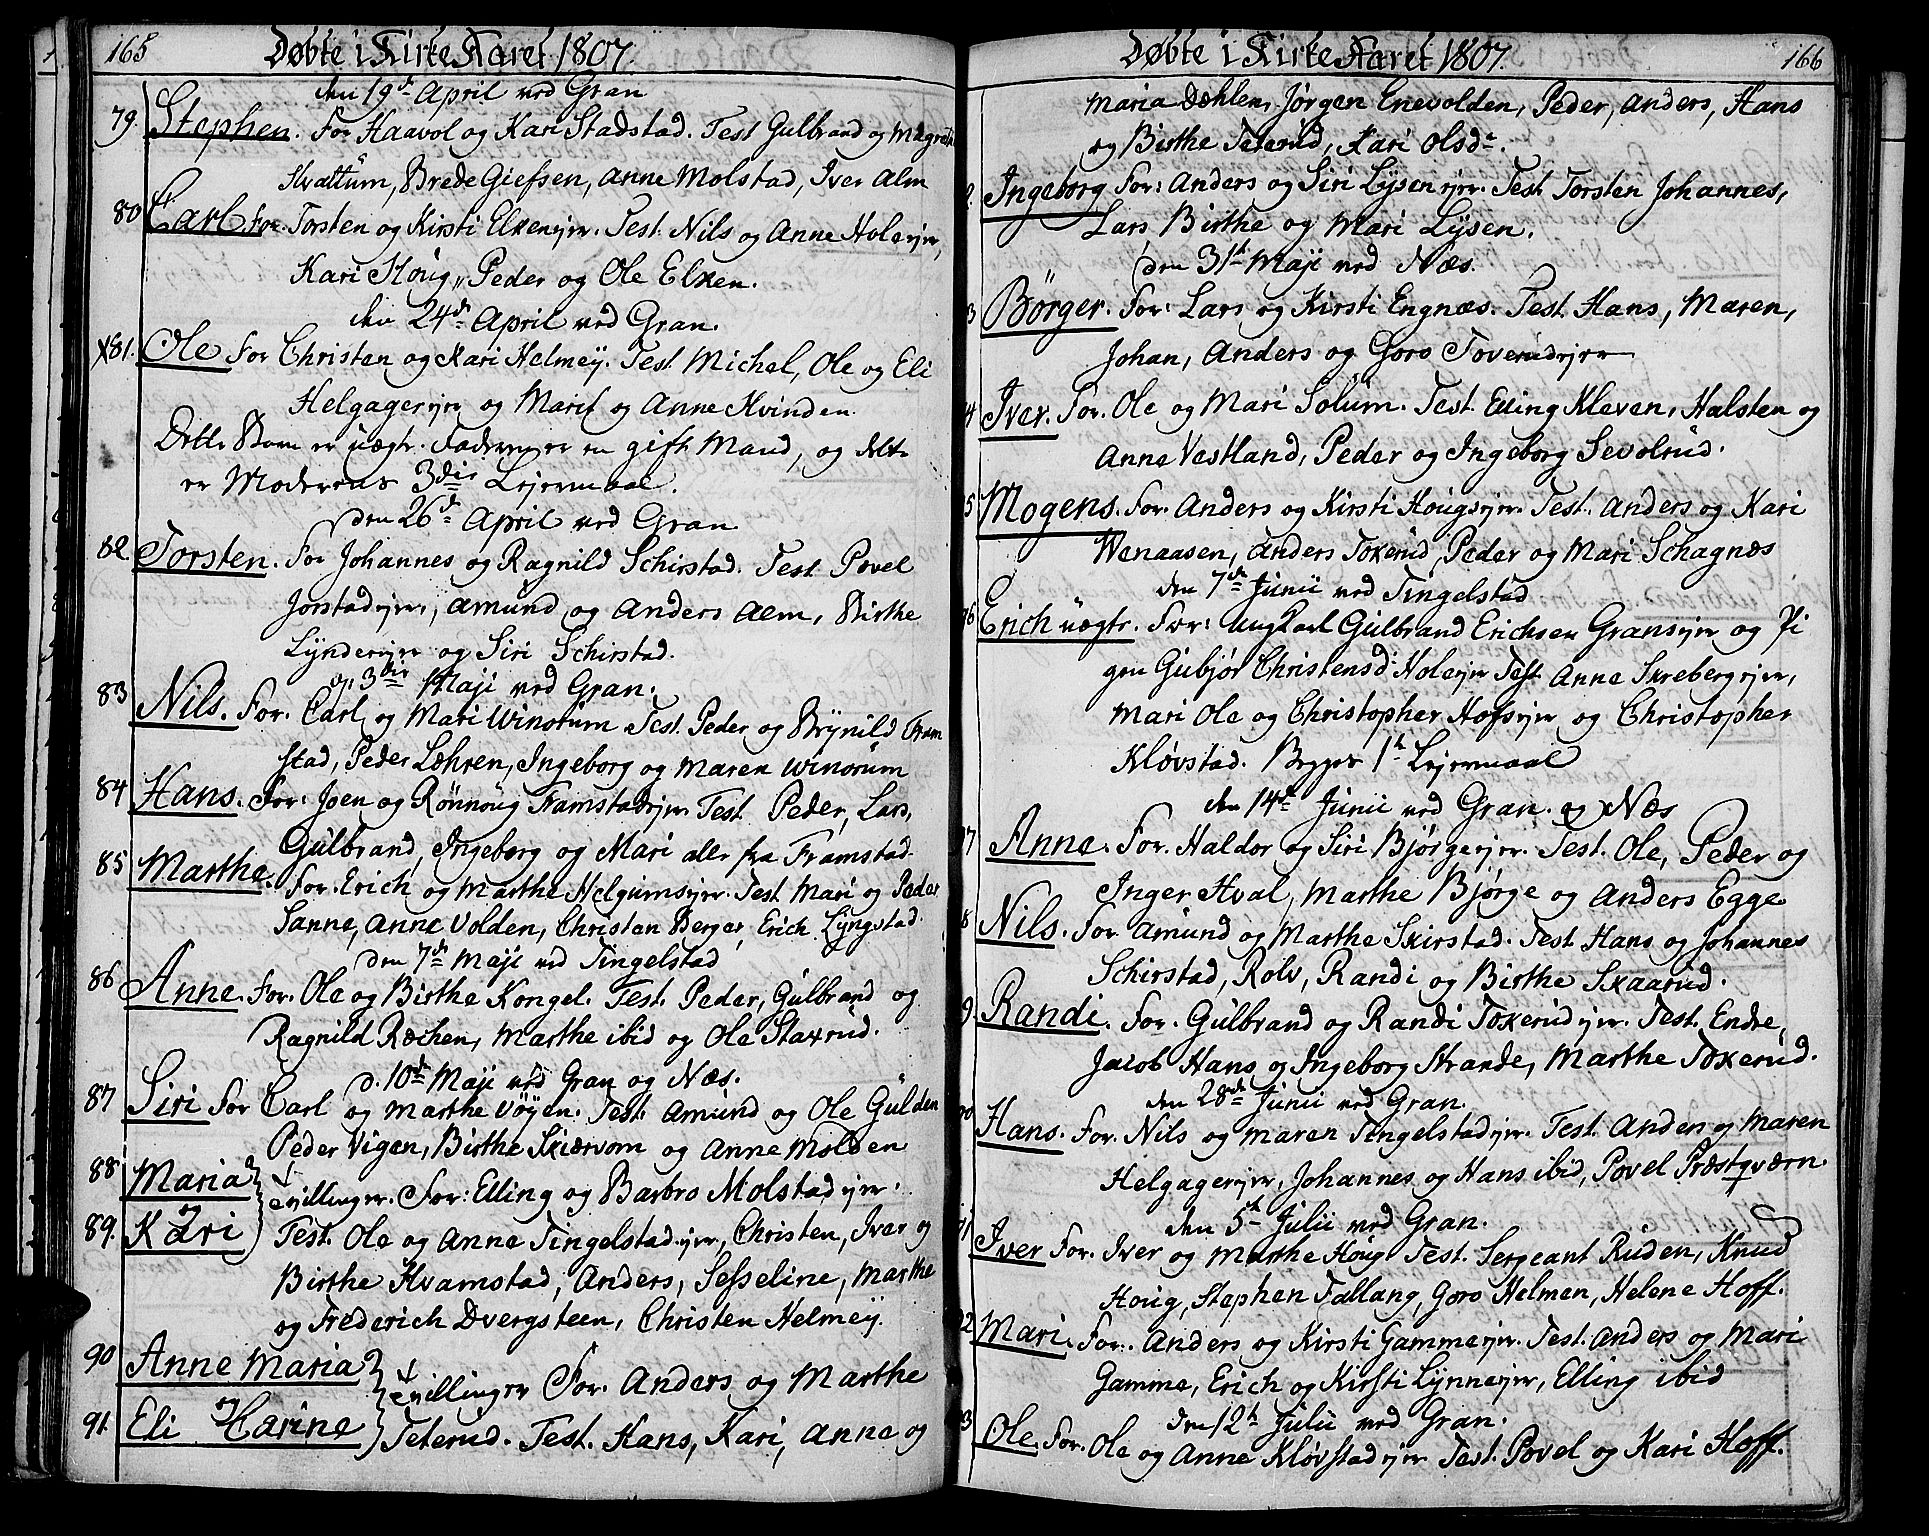 165 Døbte i Kirke Aaret 1807.
den 19de April ved Gran
79. Stephen. For Haavol og Kari Stadstad. Test Gulbrand og Magrethe
Hvattum, Brede Giefsen, Anne Molstad, Iver Alm
80 Carl For. Torsten og Kirsti Elkenejer. Test. Nils og Anne Holeejer,
Kari Houg, Peder og Ole Elken.
den 24de April ved Gran.
x81. Ole For Christen og Kari Helmey. Test Michel, Ole og Eli
Helgagerejer og Marit og Anne Kvinden
Dette Barn er uægte. Faderen er en gift Mand, og dette
er Moderens 3die Lejermaal.
den 26de April ved Gran
82 Torsten. For Johannes og Ragnild Schirstad. Test Povel
Jorstadejer, Amund og Anders Alm, Birthe
Lyndenejer og Siri Schirstad.
d. 3die Maji ved Gran.
83 Nils. For. Carl og Mari Winorum Test. Peder og Brynild Fram
stad, Peder Læhren, Ingeborg og Maren Winorum
84 Hans. For: Joen og Rönnoug Framstadejer Test Peder, Lars,
Gulbrand, Ingeborg og Mari alle fra Framstad.
85 Marthe. For. Erich og Marthe Helgumsejer. Test Mari og Peder
Sanne, Anne Volden, Christen Berger, Erich Lyngstad.
den 7de Maji ved Tingelstad
86 Anne. For. Ole og Birthe Kongel. Test. Peder, Gulbrand og
Ragnild Ræchen, Marthe ibid og Ole Staxrud.
d. 10de Maji ved Gran og Næs.
87 Siri For Carl og Marthe Vøyen. Test. Amund og Ole Gulden
Peder Vigen, Birthe Skiærvom og Anne Molden
88 Maria og Tvillinger. For: Elling og Barbro Molstadejer.
89. Kari Test. Ole og Anne Tingelstadejer, Christen, Iver og
Birthe Hvamstad, Anders, Sesseline, Marthe
og Frederich Dvergsteen, Christen Helmey.
90 Anne Maria og Tvillinger For. Anders og Marthe
91. Eli Carine Teterud. Test. Hans, Kari, Anne og
Døbte i Kirke Aaret 1807. 166
Maria Dæhlen, Jørgen Enevolden, Peder, Anders, Hans
og Birthe Teterud, Kari Olsdr.
2. Ingeborg For: Anders og Siri Lysenejer. Test Torsten Johannes,
Lars Birthe og Mari Lysen.
den 31te Maji ved Næs.
3 Börger. For: Lars og Kirsti Engnæs. Test. Hans, Maren,
Johan, Anders og Goro Toverudejer
4 Iver. For. Ole og Mari Solum. Test. Elling Kleven, Halsten og
Anne Vestland, Peder og Ingeborg Sevolrud.
5 Mogens. For. Anders og Kirsti Hougsejer. Test. Anders og Kari
Wenaasen, Anders Toxerud Peder og Mari Schagnæs
den 7de Junii ved Tingelstad
96 Erich uægte. For: Ungkarl Gulbrand Erichsen Gransejer og Pi
gen Gubjør Christensd: Holeejer Test Anne Skrebergejer,
Mari Ole og Christopher Hofsejer og Christopher
Kløvstad. Begges 1te Lejermaal
den 14de Junii ved Gran. og Næs
97 Anne. For. Haldor og Siri Bjørgeejer. Test. Ole, Peder og
Inger Hval, Marthe Bjørge og Anders Egge
8 Nils. For Amund og Marthe Skirstad. Test Hans og Johannes
Schirstad, Rolv, Randi og Birthe Skaarud.
9 Randi. For. Gulbrand og Randi Toxerudejer. Test. Endre,
Jacob Hans og Ingeborg Strande, Marthe Toxerud.
den 28de Junii ved Gran.
00 Hans. For. Nils og Maren Tingelstadejer. Test. Anders og Maren
Helgagerejer, Johannes og Hans ibid, Povel Præstqværn.
den 5te Julii ved Gran.
01 Iver For. Iver og Marthe Houg Test. Sergeant Ruden, Knud
Houg, Stephen Fallang, Goro Helmen, Helene Hoff.
02 Mari. For. Anders og Kirsti Gammeejer. Test. Anders og Mari
Gamme, Erich og Kirsti Lynneejer, Elling ibid
den 12te Julii ved Gran.
03 Ole. For. Ole og Anne Kløvstadejer Test. Povel og Kari Hoff.